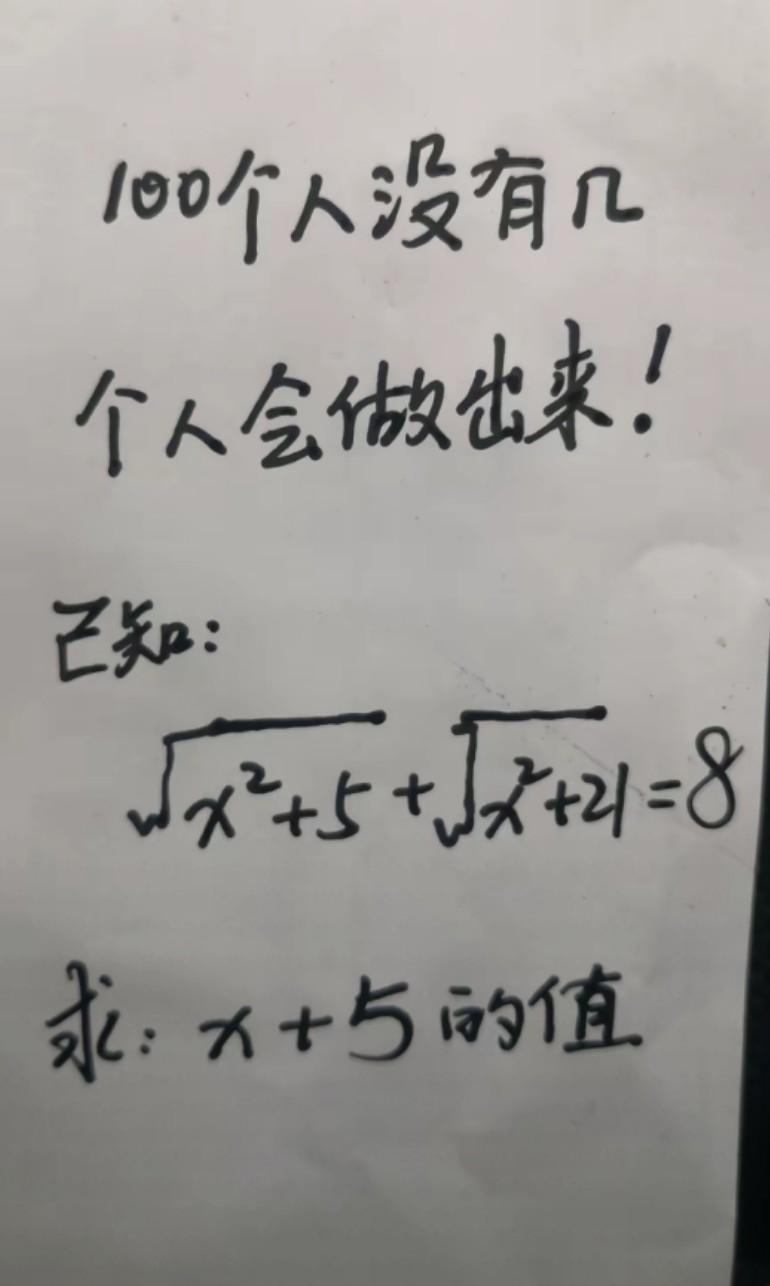 100个人没有几
个人会做出来!
已知:
√x²+5 + √x²+21 = 8
求: x+5的值